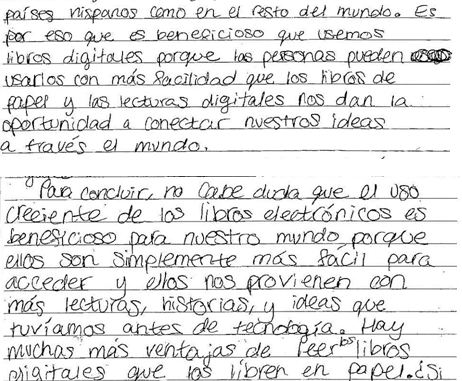 países hispanos como en el resto del mundo. Es
por eso que es beneficioso que usemos
libros digitales porque las personas pueden
usarlos con más facilidad que los libros de
papel y las lecturas digitales nos dan la
oportunidad a conectar nuestros ideas
a través el mundo.
Para concluir, no cabe duda que el uso
creciente de los libros electrónicos es
beneficioso para nuestro mundo porque
ellos son simplemente más fácil para
acceder y ellos nos provienen con
más lecturas, historias, y ideas que
tuvíamos antes de tecnología. Hay
muchas más ventajas de leer los libros
digitales que los libren en papel. ¿Si